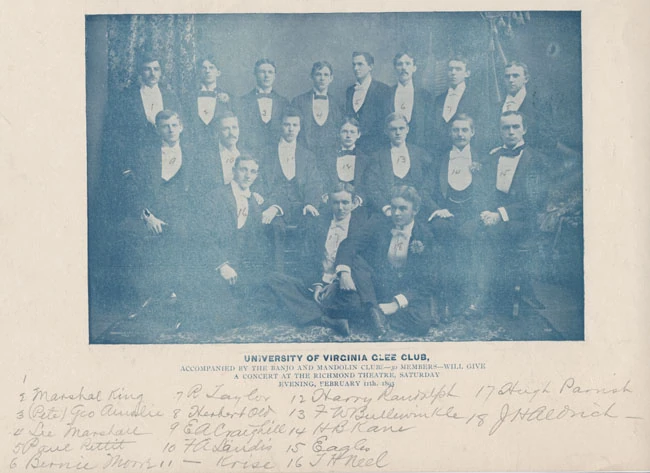 UNIVERSITY OF VIRGINIA GLEE CLUB,
ACCOMPANIED BY THE BANJO AND MANDOLIN CLUB—30 MEMBERS—WILL GIVE
A CONCERT AT THE RICHMOND THEATRE, SATURDAY
EVENING, FEBRUARY 11th, 1893
1
2 Marshal King
3 (Pete) Geo Ainslie
4 Lee Marshall
5 Paul Pettit
6 Bernie Moore
7 R Taylor
8 Herbert Old
9 E A Craighill
10 F A Landis
11 — Kroise
12 Harry Randolph
13 F W Bullewinkle
14 H B Kane
15 Eagles
16 T H Neel
17 Hugh Parrish
18 J H Aldrich —